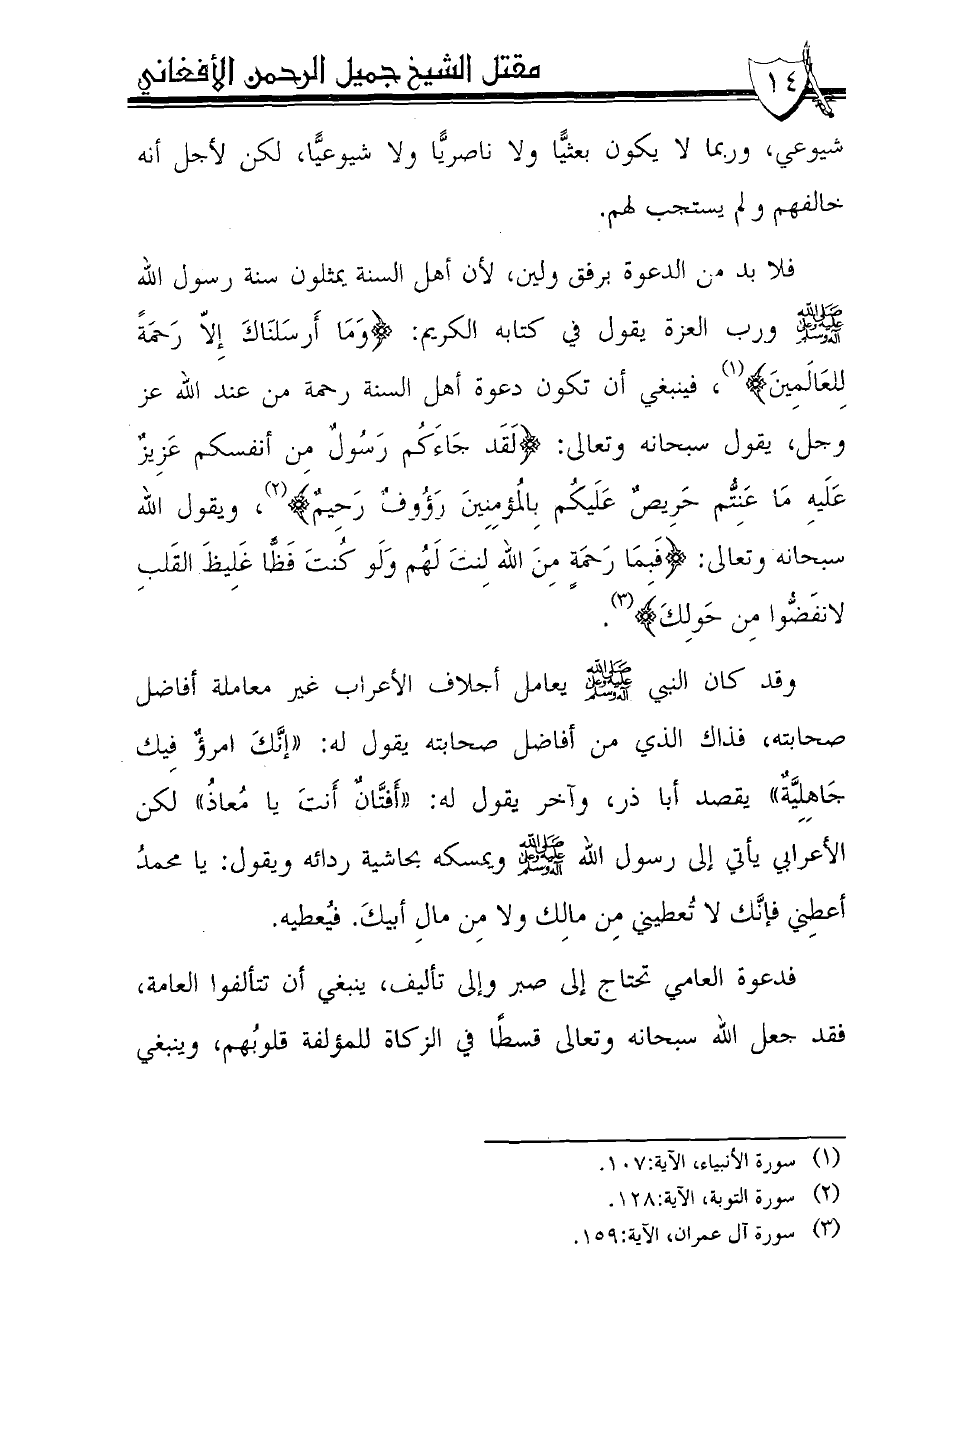 ١٤ مقتل الشيخ جميل الرحمن الأفغاني
شيوعي، وربما لا يكون بعثيًّا ولا ناصريًّا ولا شيوعيًّا، لكن لأجل أنه
خالفهم و لم يستجب لهم.
فلا بد من الدعوة برفق ولين، لأن أهل السنة يمثلون سنة رسول الله
ﷺ ورب العزة يقول في كتابه الكريم: ﴿وَمَا أَرسَلنَاكَ إِلاّ رَحمَةً
لِلعَالَمِينَ﴾(١)، فينبغي أن تكون دعوة أهل السنة رحمة من عند الله عز
وجل، يقول سبحانه وتعالى: ﴿لَقَد جَاءَكُم رَسُولٌ مِن أنفسكم عَزِيزٌ
عَلَيهِ مَا عَنِتُّم حَرِيصٌ عَلَيكُم بِالُمؤمِنِينَ رَؤُوفٌ رَحِيمٌ﴾(٢)، ويقول الله
سبحانه وتعالى: ﴿فَبِمَا رَحمَةٍ مِنَ الله لِنتَ لَهُم وَلَو كُنتَ فَظًّا غَلِيظَ القَلبِ
لانفَضُّوا مِن حَولِكَ﴾(٣).
وقد كان النبي ﷺ يعامل أجلاف الأعراب غير معاملة أفاضل
صحابته، فذاك الذي من أفاضل صحابته يقول له: «إنَّكَ امرؤٌ فِيك
جَاهِلِيَّةٌ» يقصد أبا ذر، وآخر يقول له: «أَفَتَّانٌ أَنتَ يا مُعاذُ» لكن
الأعرابي يأتي إلى رسول الله ﷺ ويمسكه بحاشية ردائه ويقول: يا محمدُ
أعطِني فإنَّك لا تُعطيني مِن مالِك ولا مِن مالِ أبيكَ. فيُعطيه.
فدعوة العامي تحتاج إلى صبر وإلى تأليف، ينبغي أن تتألفوا العامة،
فقد جعل الله سبحانه وتعالى قسطًا في الزكاة للمؤلفة قلوبُهم، وينبغي
(١) سورة الأنبياء، الآية:١٠٧.
(٢) سورة التوبة، الآية:١٢٨.
(٣) سورة آل عمران، الآية:١٥٩.